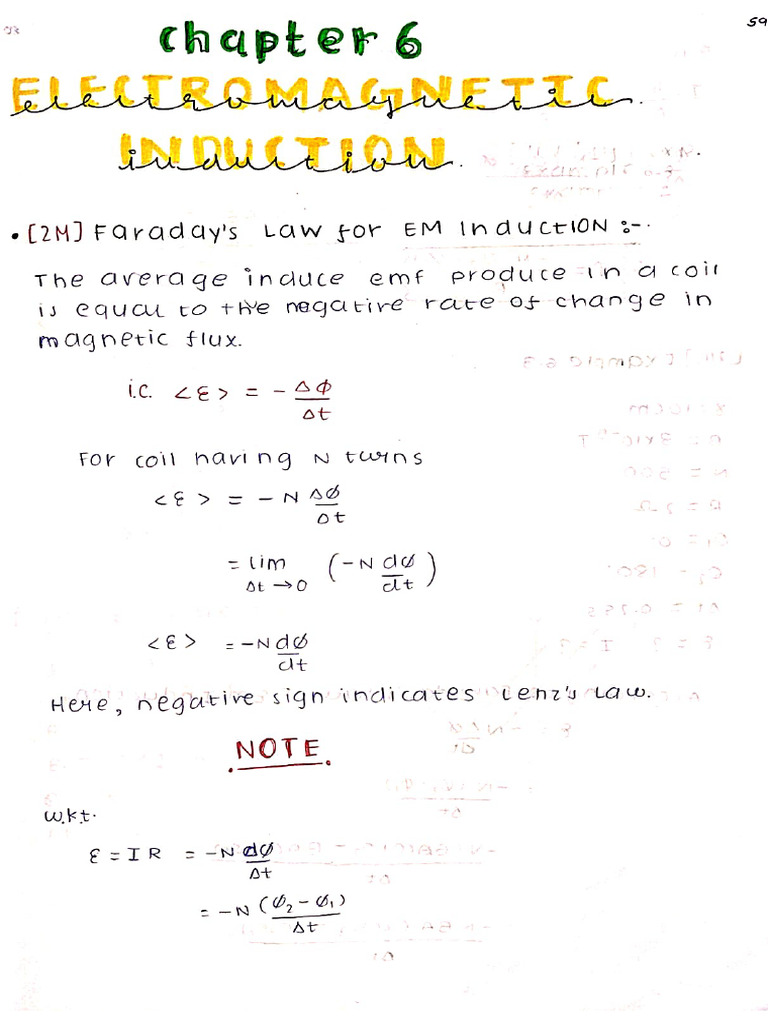 59
Chapter 6
ELECTROMAGNETIC
electromagnetic
INDUCTION
induction
• [2M] Faraday's Law for EM Induction :-
The average induce emf produce in a coil
is equal to the negative rate of change in
magnetic flux.
i.e. <ε> = - Δφ/Δt
For coil having N turns
<ε> = - N Δφ/Δt
= lim Δt → 0 (-N dφ/dt)
<ε> = -N dφ/dt
Here, negative sign indicates Lenz's Law.
NOTE
w.k.t.
ε = I R = -N dφ/Δt
= -N (φ2 - φ1)/Δt